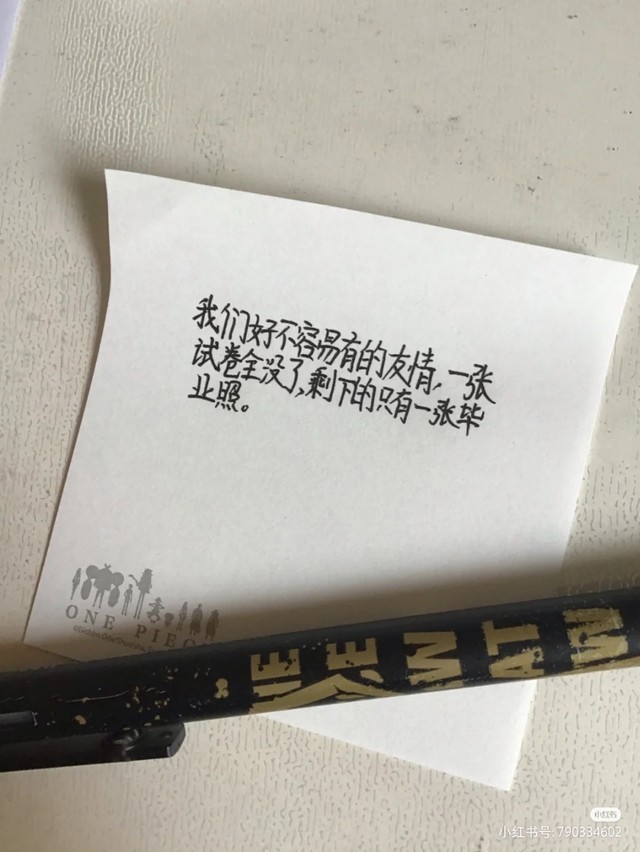 我们好不容易有的友情,一张
试卷全没了,剩下的只有一张毕
业照。
ONE PIEC
小红书
小红书号:790334602